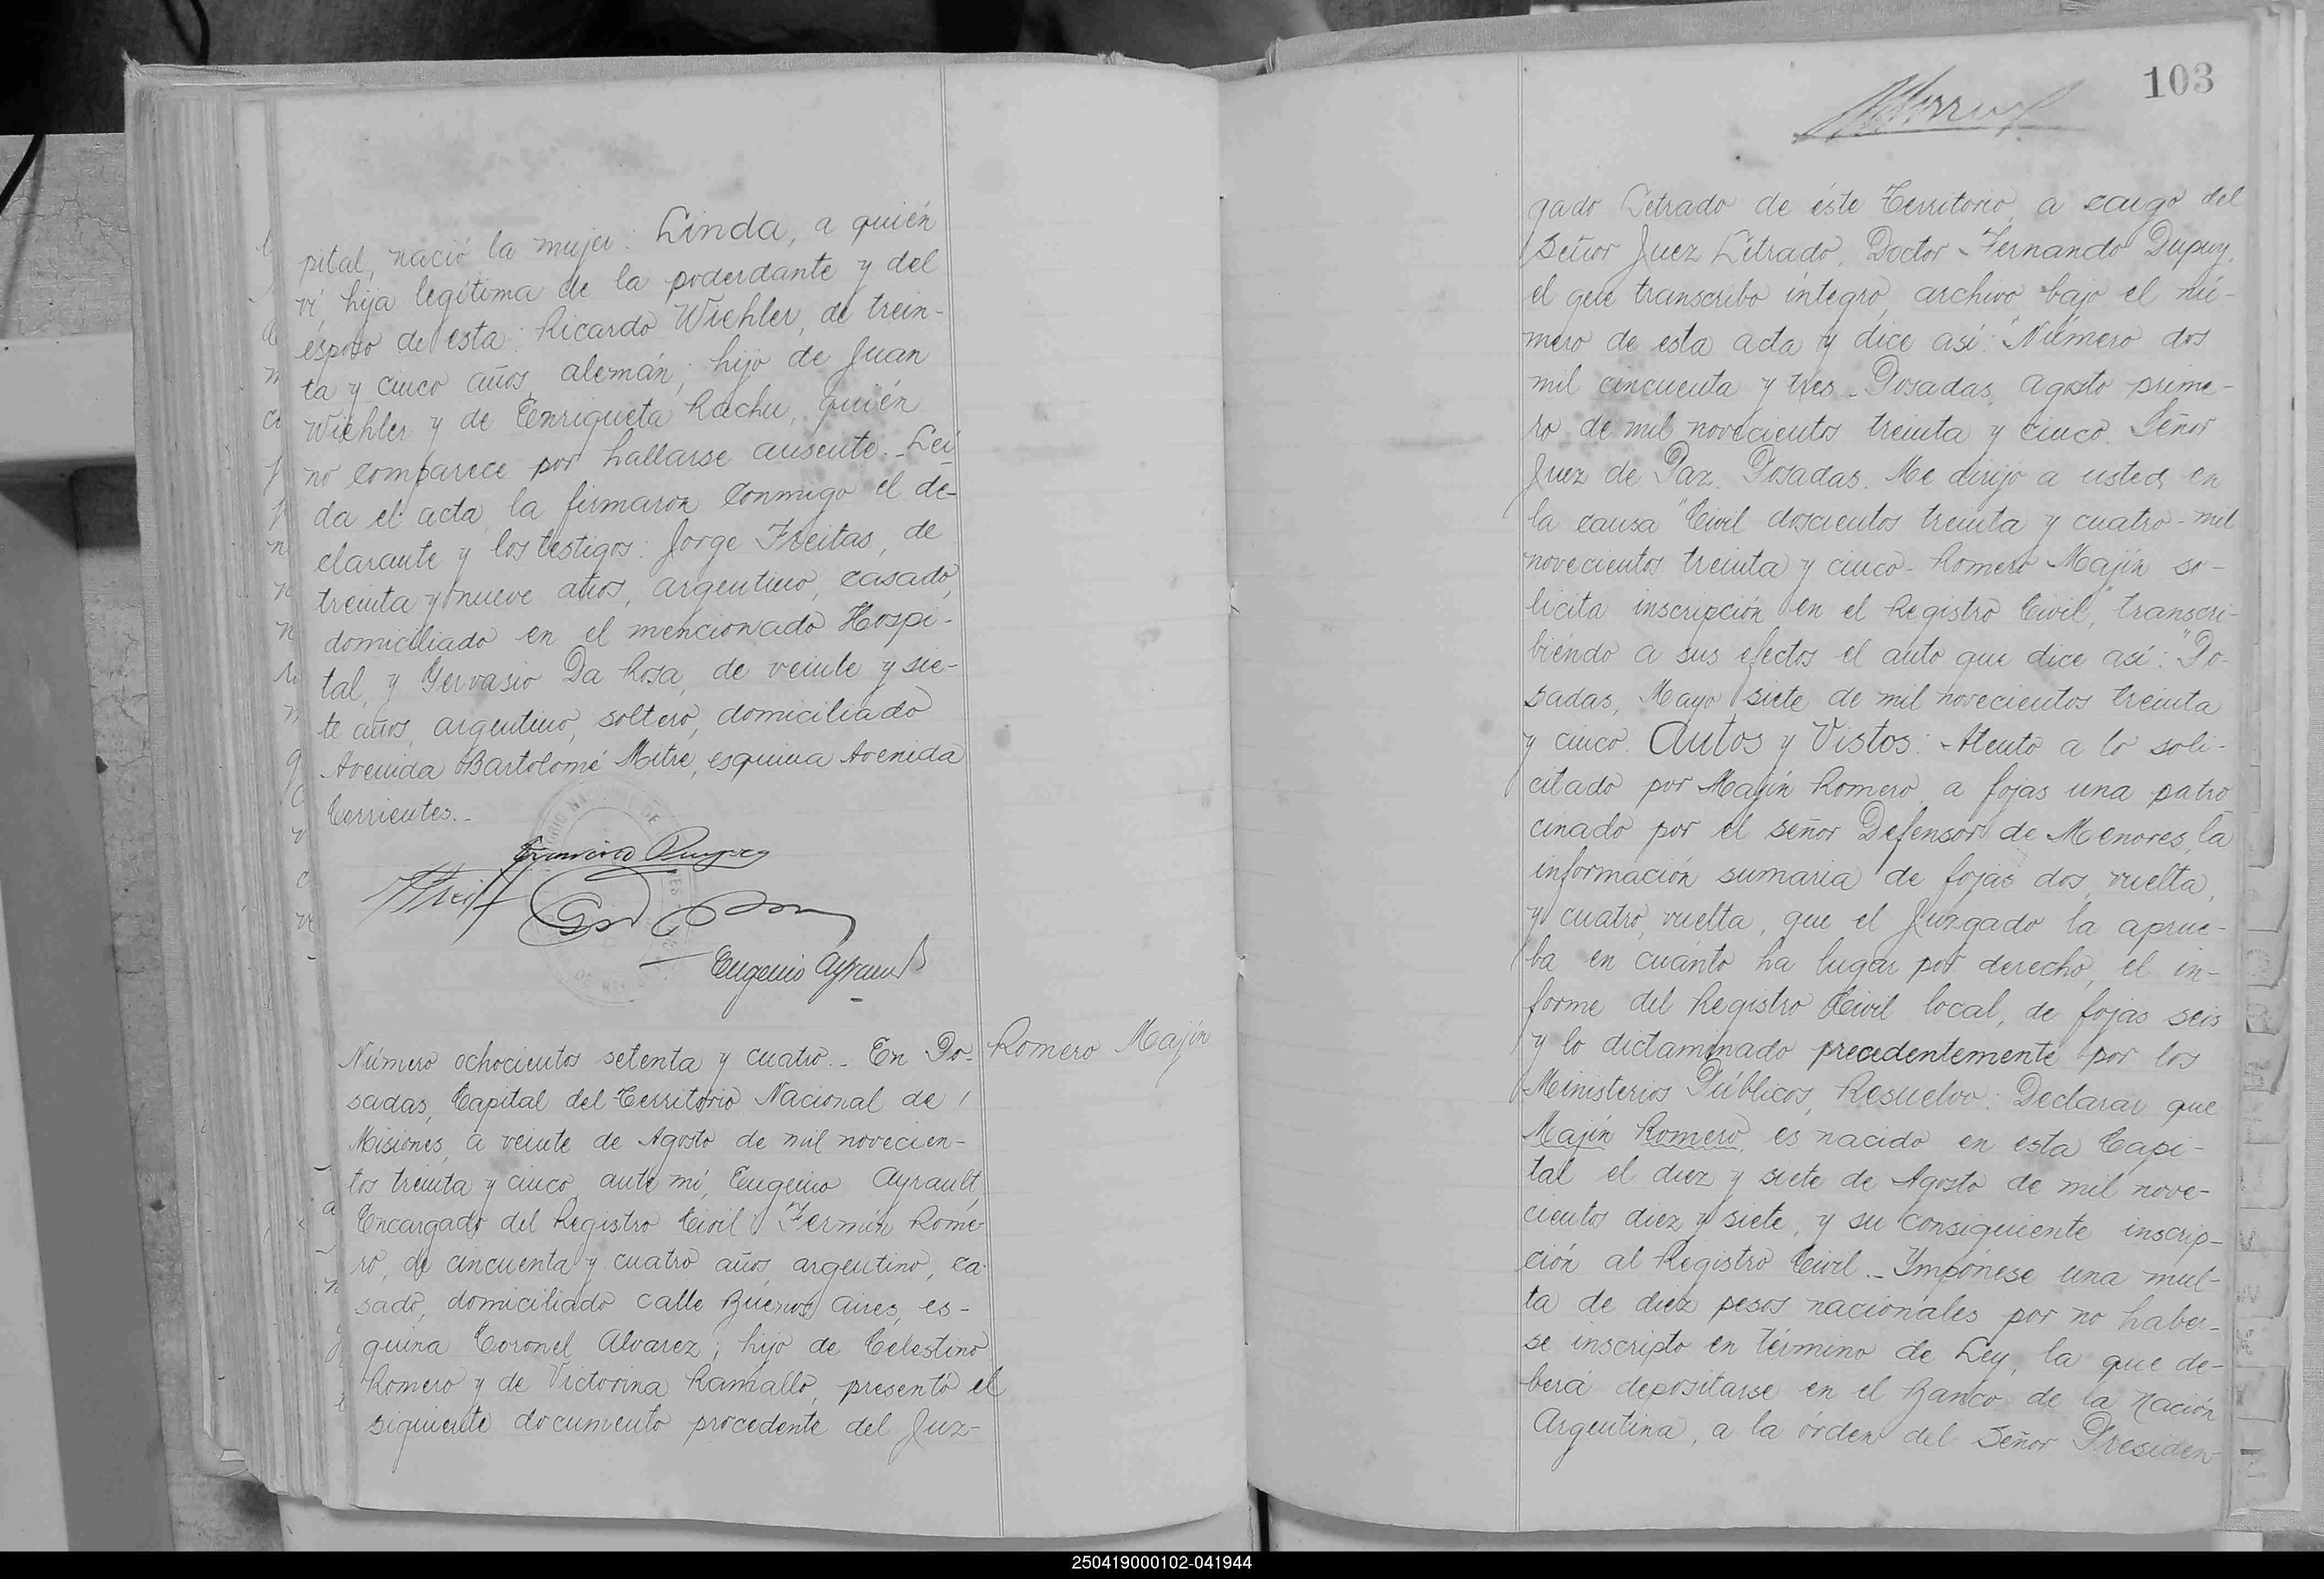 pital, nació la mujer: Linda, a quién
ví, hija legítima de la poderdante y del
esposo de esta: Ricardo Wiehler, de trein-
ta y cinco años, alemán; hijo de Juan
Wiehler y de Enriqueta Rachu, quién
no comparece por hallarse ausente._Leí
da el acta, la firmaron conmigo el de-
clarante y los testigos: Jorge Freitas, de
treinta y nueve años, argentino, casado,
domiciliado en el mencionado Hospi-
tal, y Gervasio Da Rosa, de veinte y sie-
te años, argentino, soltero, domiciliado
Avenida Bartolomé Mitre, esquina Avenida
Corrientes._
Eugenio Ayrault
Número ochocientos setenta y cuatro._ En Po-
sadas, Capital del Territorio Nacional de
Misiones, a veinte de Agosto de mil novecien-
tos treinta y cinco, ante mí, Eugenio Ayrault
Encargado del Registro Civil: Fermín Rome-
ro, de cincuenta y cuatro años, argentino, ca-
sado, domiciliado calle Buenos Aires, es-
quina Coronel Alvarez; hijo de Celestino
Romero y de Victorina Ramallo, presentó el
siguiente documento procedente del Juz-
Romero Majín
103
gado Letrado de éste Territorio, a cargo del
Señor Juez Letrado, Doctor Fernando Dupuy,
el que transcribo íntegro, archivo bajo el nú-
mero de esta acta y dice así: "Número dos
mil cincuenta y tres._Posadas, agosto prime-
ro de mil novecientos treinta y cinco. Señor
Juez de Paz. Posadas. Me dirijo a usted, en
la causa "Civil doscientos treinta y cuatro-mil
novecientos treinta y cinco- Romero Majín so-
licita inscripción en el Registro Civil," transcri-
biéndo a sus efectos el auto que dice así: "Po-
sadas, Mayo siete de mil novecientos treinta
y cinco. Autos y Vistos: Atento a lo soli-
citado por Majín Romero, a fojas una patro
cinado por el señor Defensor de Menores, la
información sumaria de fojas dos, vuelta,
y cuatro, vuelta, que el Juzgado la aprue-
ba en cuánto ha lugar por derecho, el in-
forme del Registro Civil local, de fojas seis
y lo dictaminado precedentemente por los
Ministerios Públicos, Resuelvo: Declarar que
Majín Romero, es nacido en esta Capi-
tal el diez y siete de Agosto de mil nove-
cientos diez y siete, y su consiguiente inscrip-
ción al Registro Civil._ Impónese una mul-
ta de diez pesos nacionales por no haber-
se inscripto en término de Ley, la que de-
berá depositarse en el Banco de la Nación
Argentina, a la órden del Señor Presiden-
250419000102-041944